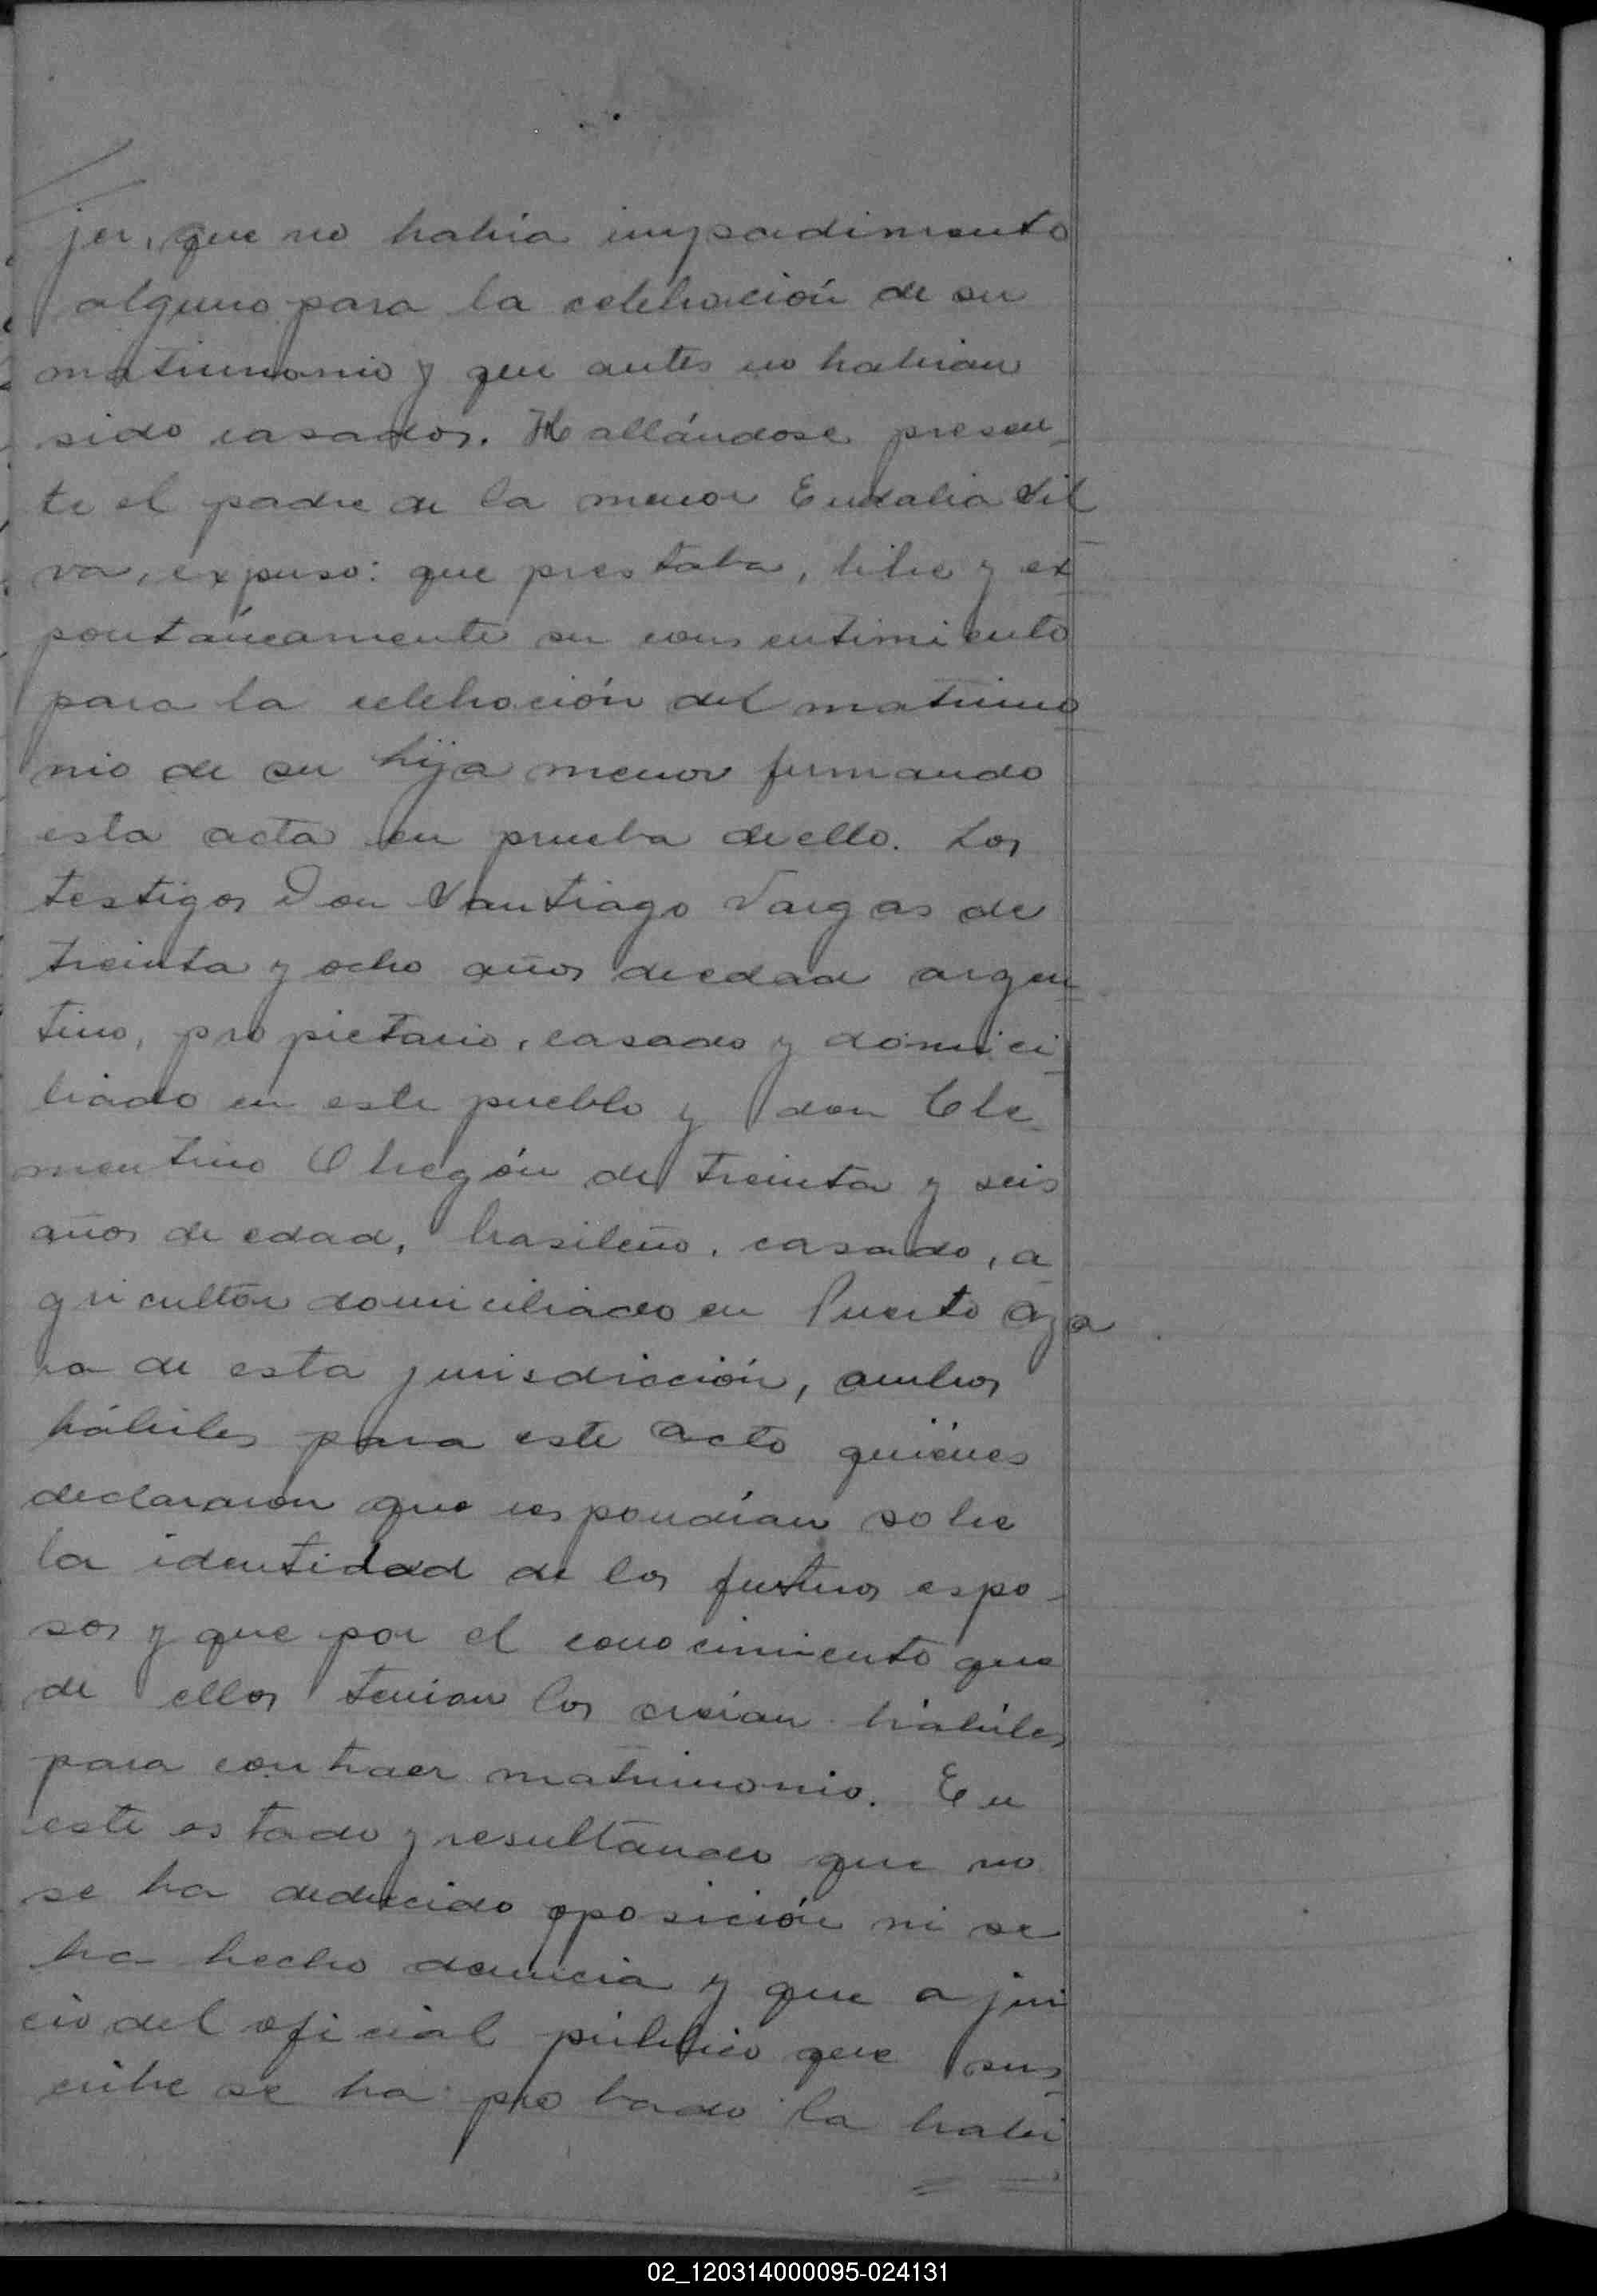 jer, que no había impedimento
alguno para la celebración de su
matrimonio y que antes no habían
sido casados. Hallándose presen-
te el padre de la menor Eudalia Sil
va, expuso: que prestaba, libre y ex
pontáneamente su consentimiento
para la celebración del matrimo
nio de su hija menor firmando
esta acta en prueba de ello. Los
testigos Don Santiago Vargas de
treinta y ocho años de edad argen
tino, propietario, casado y domici
liado en este pueblo y don Cle
mentino Obregón de treinta y seis
años de edad, brasileño, casado, a
gricultor domiciliado en Puerto Aza
ra de esta jurisdicción, ambos
hábiles para este acto quiénes
declararon que respondían sobre
la identidad de los futuros espo-
sos y que por el conocimiento que
de ellos tenian los creian hábiles
para contraer matrimonio. En
este estado y resultando que no
se ha deducido oposición ni se
ha hecho denuncia y que a jui
cio del oficial público que sus
cribe se ha probado la habi
02_120314000095-024131